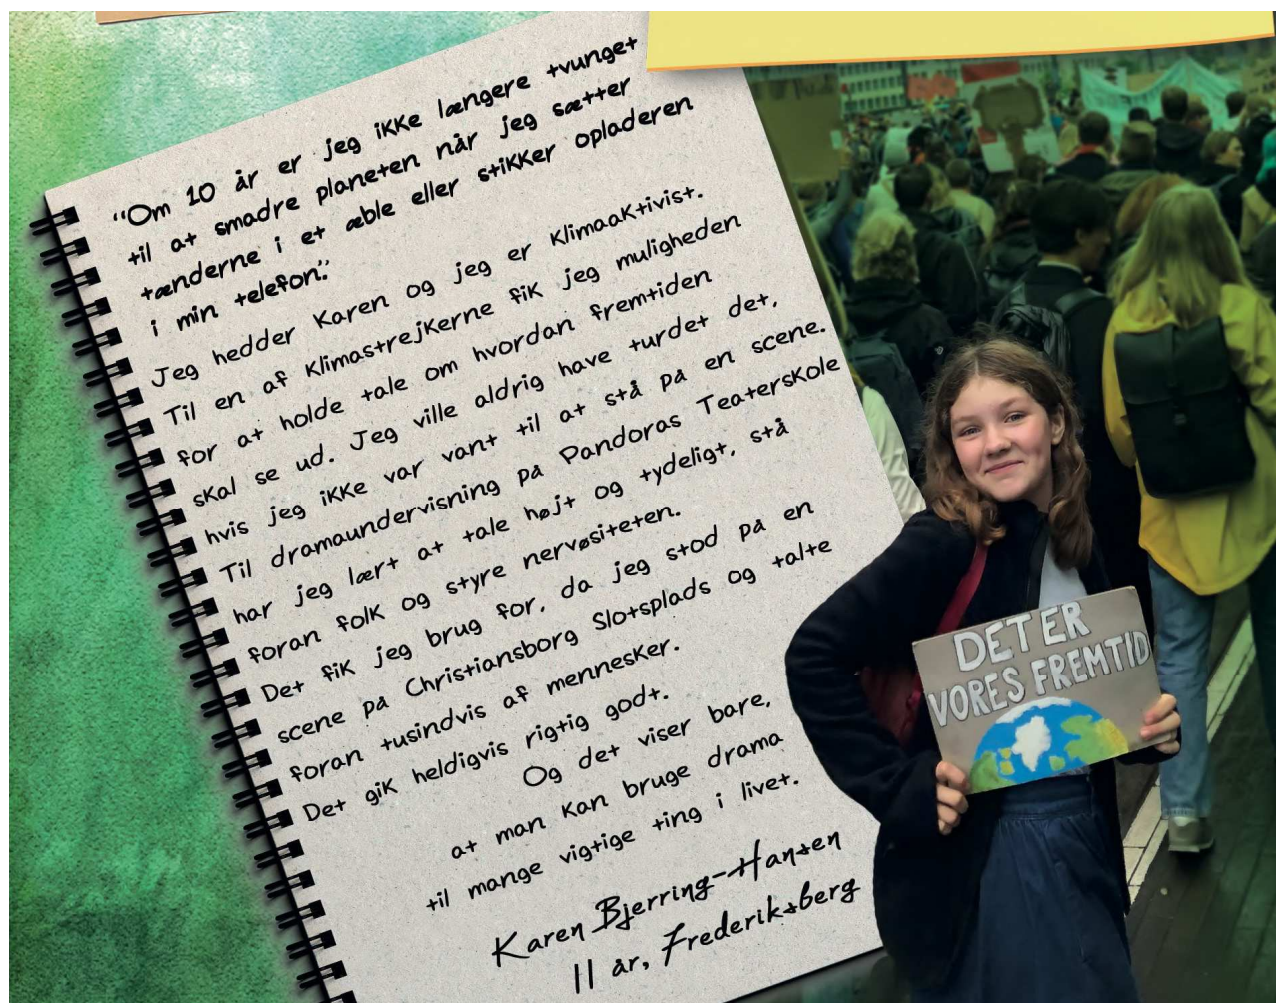 "Om 10 år er jeg ikke længere tvunget
til at smadre planeten når jeg sætter
tænderne i et æble eller stikker opladeren
i min telefon".
Jeg hedder Karen og jeg er klimaaktivist.
Til en af klimastrejkerne fik jeg muligheden
for at holde tale om hvordan fremtiden
skal se ud. Jeg ville aldrig have turdet det,
hvis jeg ikke var vant til at stå på en scene.
Til dramaundervisning på Pandoras Teaterskole
har jeg lært at tale højt og tydeligt, stå
foran folk og styre nervøsiteten.
Det fik jeg brug for, da jeg stod på en
scene på Christiansborg Slotsplads og talte
foran tusindvis af mennesker.
Det gik heldigvis rigtig godt.
Og det viser bare,
at man kan bruge drama
til mange vigtige ting i livet.
Karen Bjerring-Hansen
11 år, Frederiksberg
DET ER
VORES FREMTID